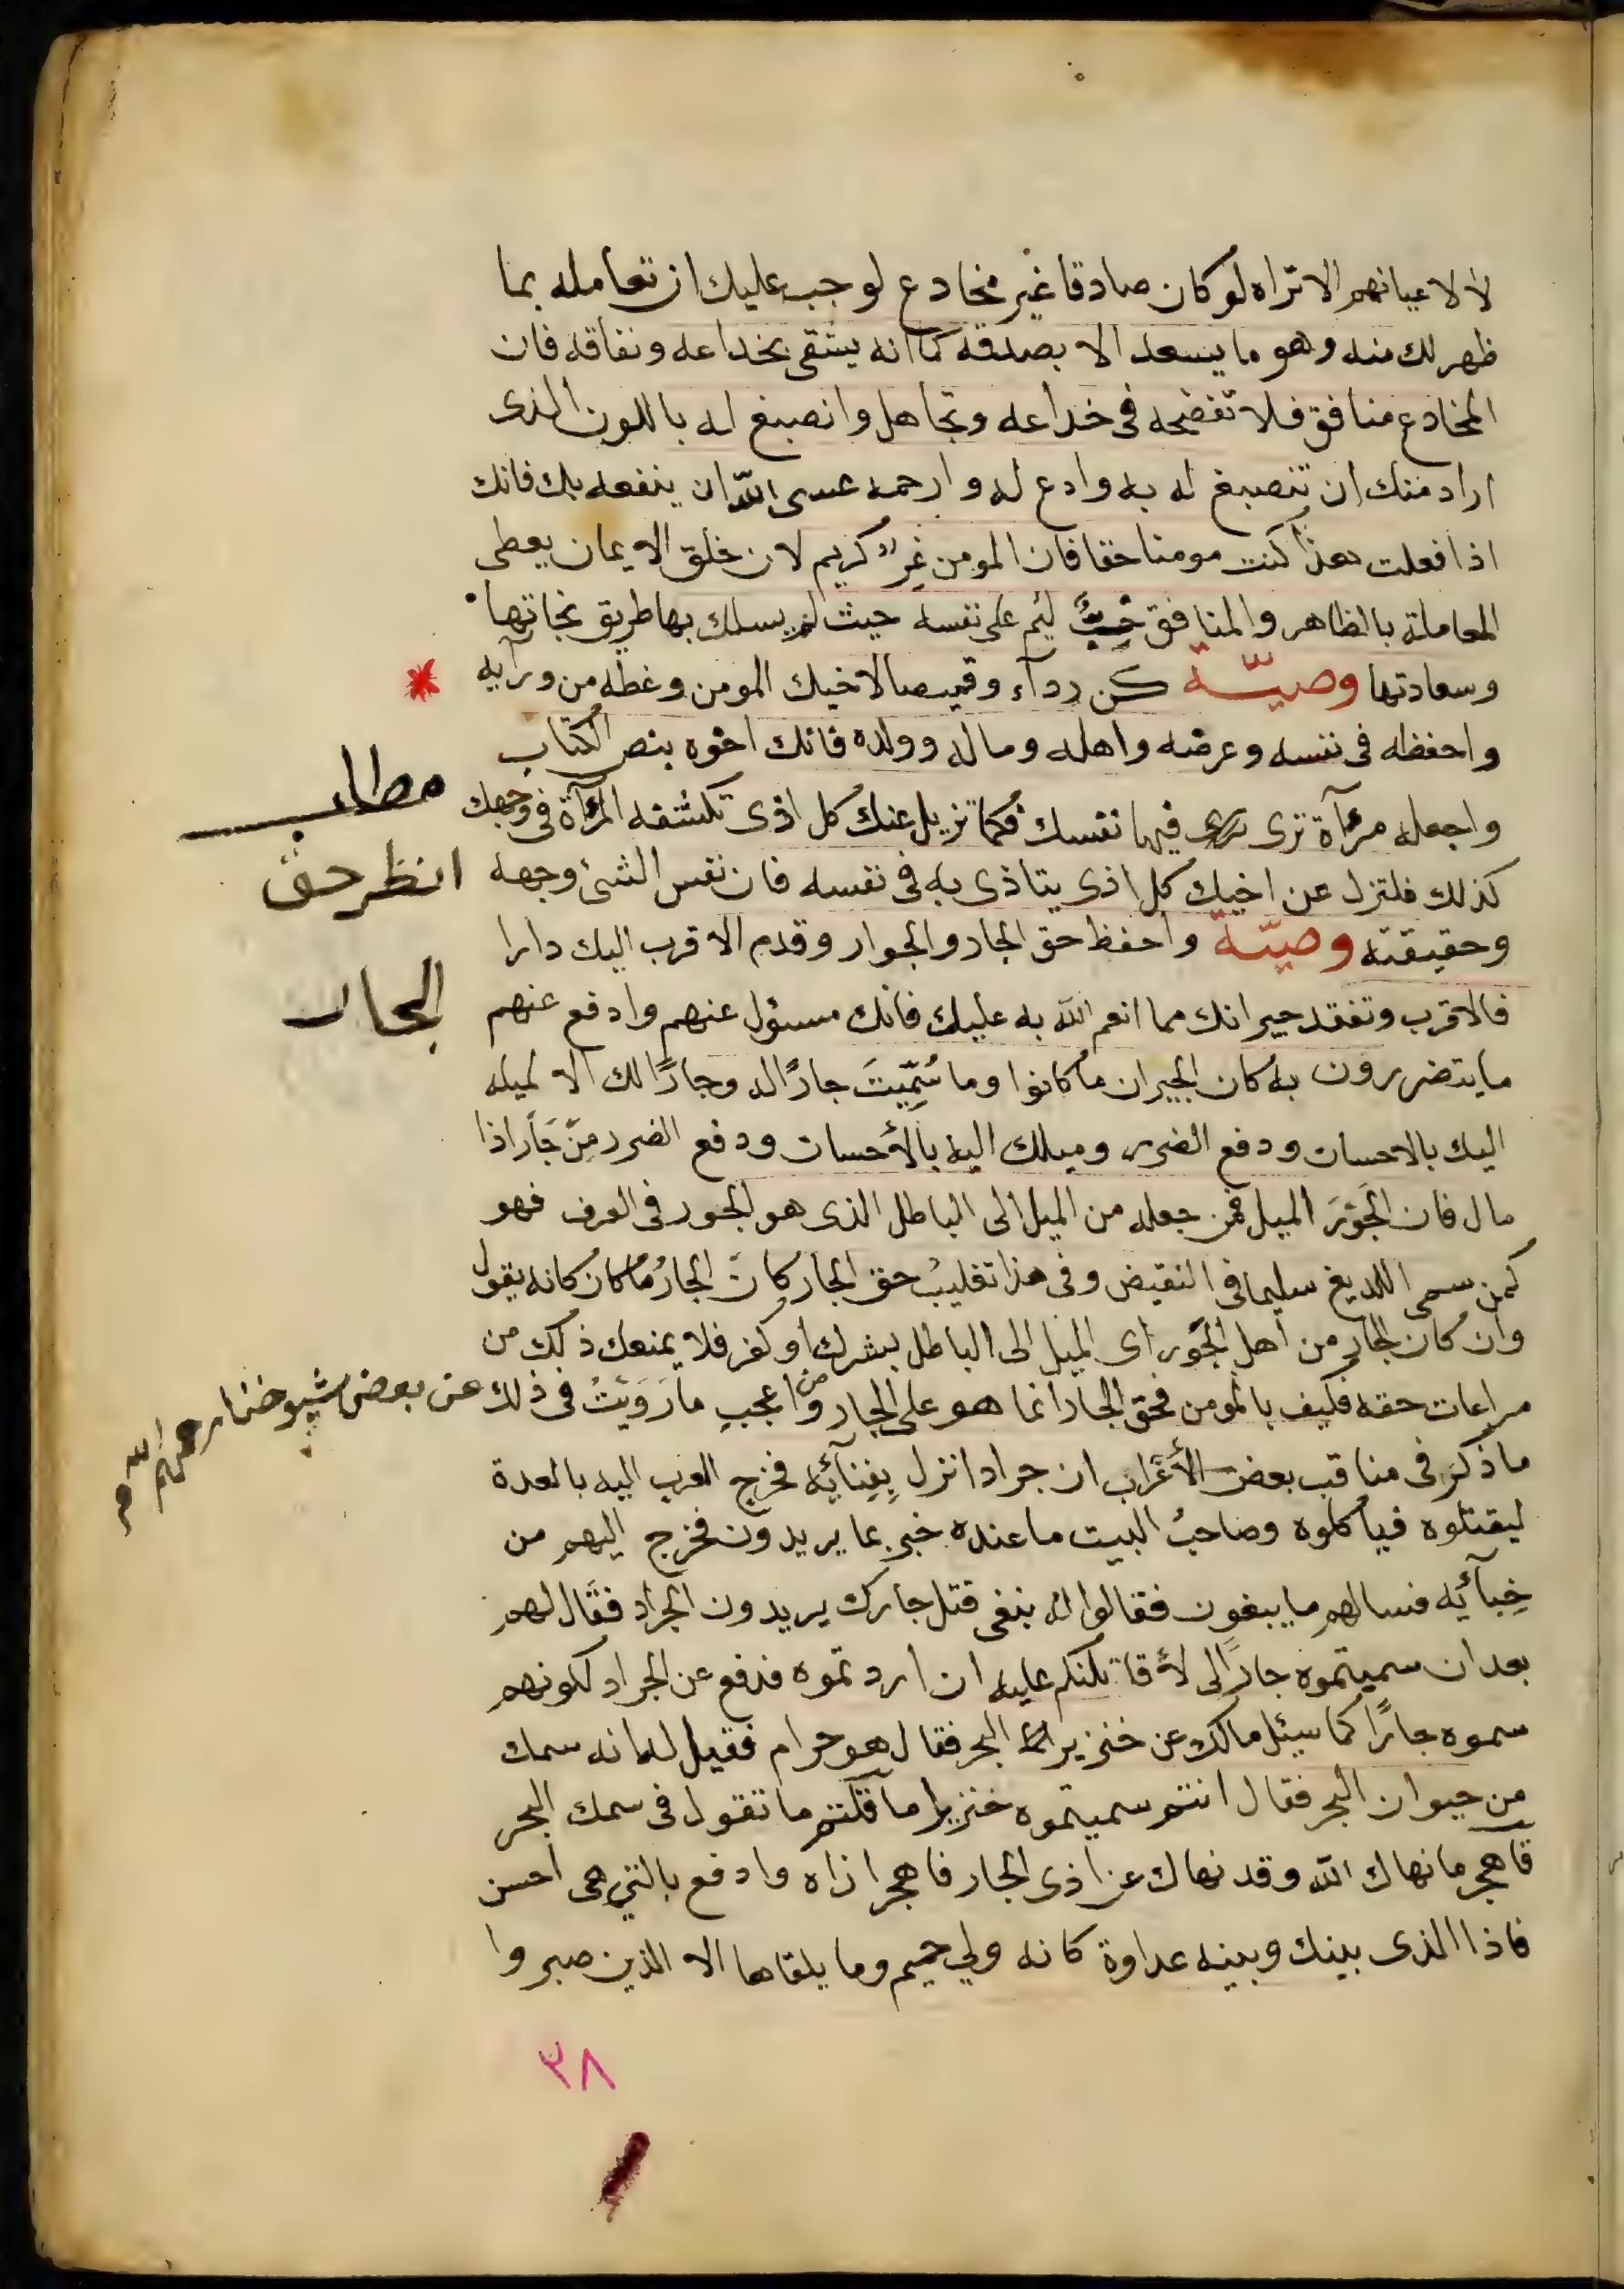 لا لاعيانهم الا تراه لو كان صادقا غير مخادع لوجب عليك ان تعامله بما
ظهر لك منه وهو ما يسعد الا بصدقه كما انه يشقى بخداعه ونفاقه فان
المخادع منافق فلا تفضحه فى خداعه وتجاهل وانصبغ له باللون الذى
اراد منك ان تنصبغ له به وادع له وارحمه عسى الله ان ينفعه بك فانك
اذا فعلت هذا كنت مومنا حقا فان المومن غِرٌّ كريم لان خلق الايمان يعطى
المعاملة بالظاهر والمنافق خِبٌّ لئيم على نفسه حيث لم يسلك بها طريق نجاتها
وسعادتها وصيّة كن ردآء وقميصا لاخيك المومن وغطه من ورآيه
واحفظه فى نفسه وعرضه واهله وماله وولده فانك اخوه بنص الكتاب
مطلب
واجعله مرآة ترى فيها نفسك فكما تزيل عنك كل اذى تكشفه المرآة فى وجهك
انظر حق
كذلك فلتزل عن اخيك كل اذى يتاذى به فى نفسه فان نفس الشئ وجهه
وحقيقته وصيّة واحفظ حق الجار والجوار وقدم الاقرب اليك دارا
الجار
فالاقرب وتفقد جيرانك مما انعم الله به عليك فانك مسئول عنهم وادفع عنهم
ما يتضررون به كان الجيران ما كانوا وما سُمِّيتَ جارًا له وجارًا لك الا لميله
اليك بالاحسان ودفع الضرر وميلك اليه بالأحسان ودفع الضرر مِن جَأر اذا
مال فان الجَوْرَ الميل فمن جعله من الميل الى الباطل الذى هو الجور فى العرف فهو
كمن سمى اللديغ سليما فى النقيض وفى هذا تغليب حق الجار كان الجارُ ما كان كانه يقول
وان كان الجار من أهل الجَور اى الميل الى الباطل بشرك أو كفر فلا يمنعك ذلك من
مراعات حقه فكيف بالمومن فحق الجار انما هو على الجار ومن اعجبِ ما رَوَيْتُ فى ذلك عن بعض شيوخنا رحمهم الله
ما ذكرَ فى مناقب بعض الأعْراب ان جرادا نزل بِفِنآئِه فخرج العرب اليه بالعدة
ليقتلوه فيأكلوه وصاحبُ البيت ما عنده خبر بما يريدون فخرج اليهم من
خِبآئِه فسالهم ما يبغون فقالوا له نبغى قتل جارك يريدون الجراد فقال لهم
بعد ان سميتموه جارًا لى لأقاتلنكم عليه ان اردتموه فدفع عن الجراد لكونهم
سموه جارًا كما سيئل مالك عن خنزير البحر فقال هو حرام فقيل له انه سمك
من حيوان البحر فقال انتم سميتموه خنزيرا ما قلتم ما تقول فى سمك البحر
فاهجر ما نهاك الله وقد نهاك عن اذى الجار فاهجر اذاه وادفع بالتي هى احسن
فاذا الذى بينك وبينه عداوة كانه ولي حميم وما يلقاها الا الذين صبروا
٣٨